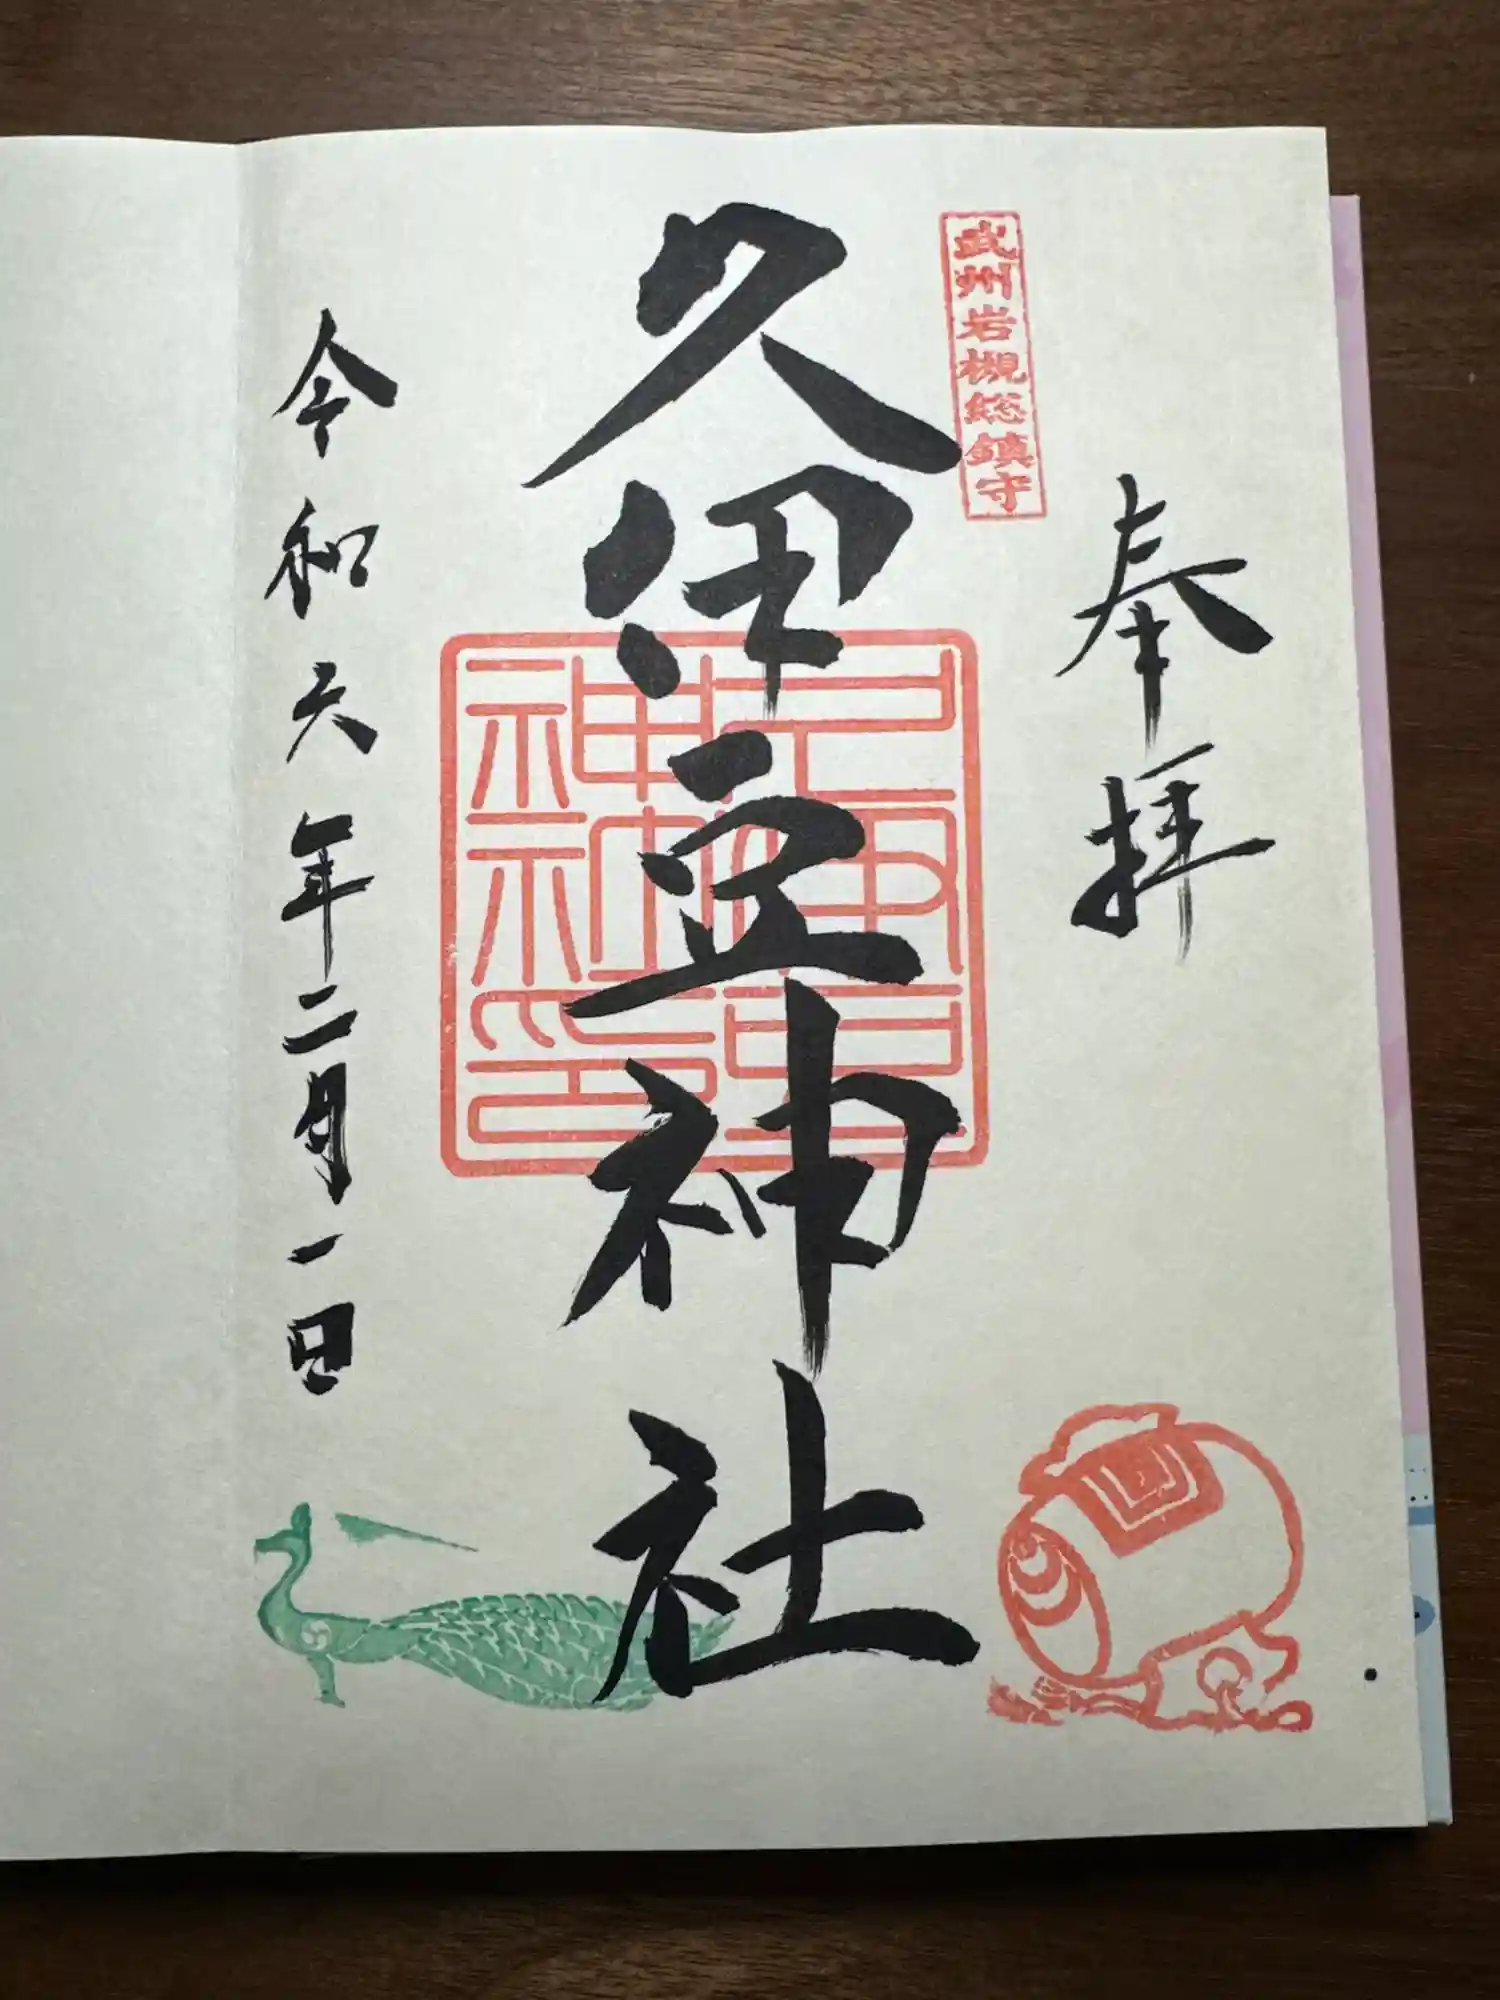 奉拝
武州岩槻総鎮守
久伊豆神社
久伊豆神社印
令和六年二月一日